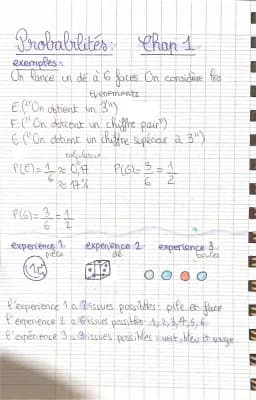 Probabilités: Chap 1
exemples:
On lance un dé à 6 faces On considère les
évènements:
E:("On obtient un 3")
F:("On obtient un chiffre pair")
G:("On obtient un chiffre supérieur à 3")
calculatrice
P(E)=1/6 ≈ 0,17 P(G)=3/6=1/2
≈ 17%
P(G)=3/6=1/2
experience 1 experience 2 experience 3
pièce dé boules
1€
l'experience 1 a 2 issues possibles: pile et face
l'experience 2 a 6 issues possibles 1,2,3,4,5,6
l'expérience 3 a 3 issues possibles: vert, bleu et rouge